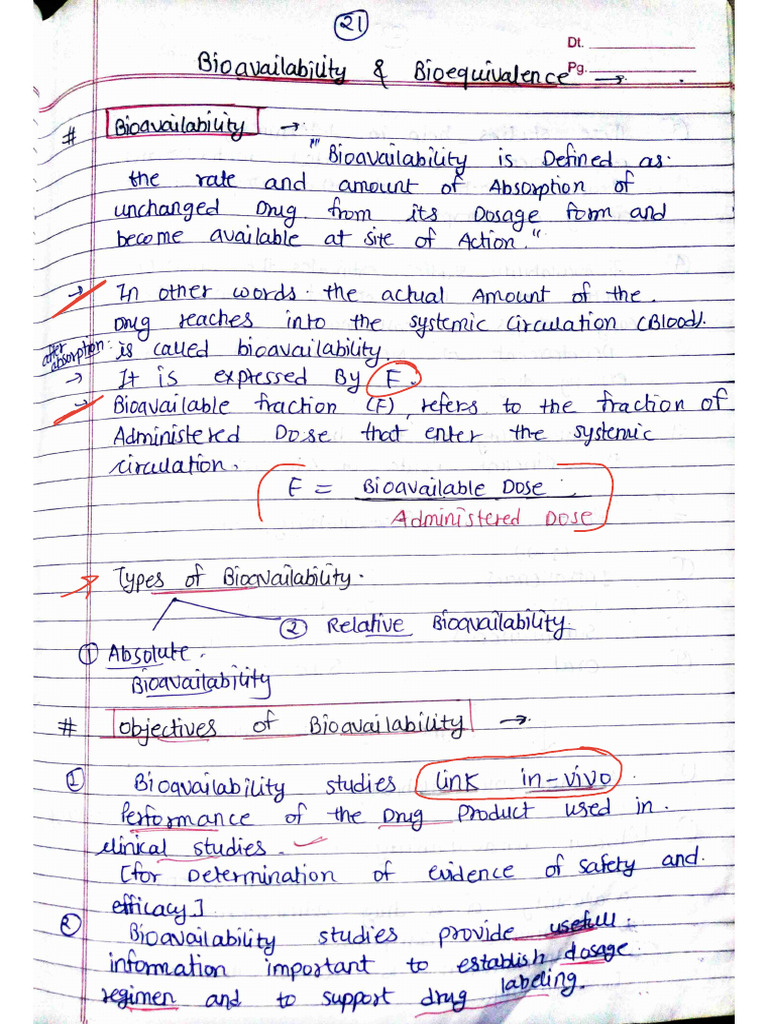 21
Dt.
Pg.
Bioavailability & Bioequivalence →
# Bioavailability →
"Bioavailability is Defined as
the rate and amount of Absorption of
unchanged Drug from its Dosage form and
become available at site of Action."
→ In other words the actual Amount of the
Drug reaches into the systemic circulation (Blood).
after absorption: is called bioavailability.
→ It is expressed By F.
→ Bioavailable fraction (F), refers to the fraction of
Administered Dose that enter the systemic
circulation.
F = Bioavailable Dose
Administered Dose
Types of Bioavailability.
② Relative Bioavailability
① Absolute
Bioavailability
# Objectives of Bioavailability →
① Bioavailability studies link in-vivo
Performance of the Drug Product used in
clinical studies.
[for Determination of evidence of safety and
efficacy]
② Bioavailability studies provide usefull
information important to establish dosage
regimen and to support drug labeling.